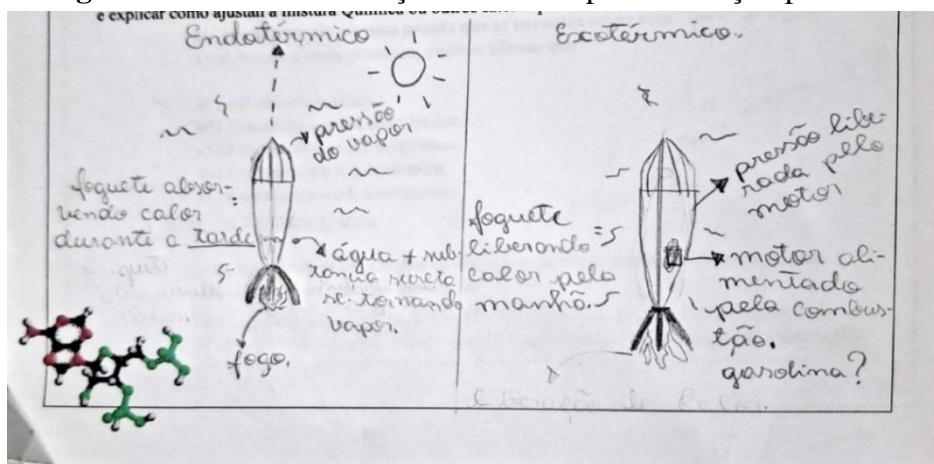 e explicar como ajustam a mistura Química ou outros
Endotérmico
pressão
do vapor
foguete absor-
vendo calor
durante a tarde
água + subs-
tancia secreta
se tornando
vapor.
fogo.
Exotérmico.
pressão libe-
rada pelo
motor
foguete
liberando
calor pela
manhã.
motor ali-
mentado
pela combus-
tão.
gasolina?
liberação de calor.